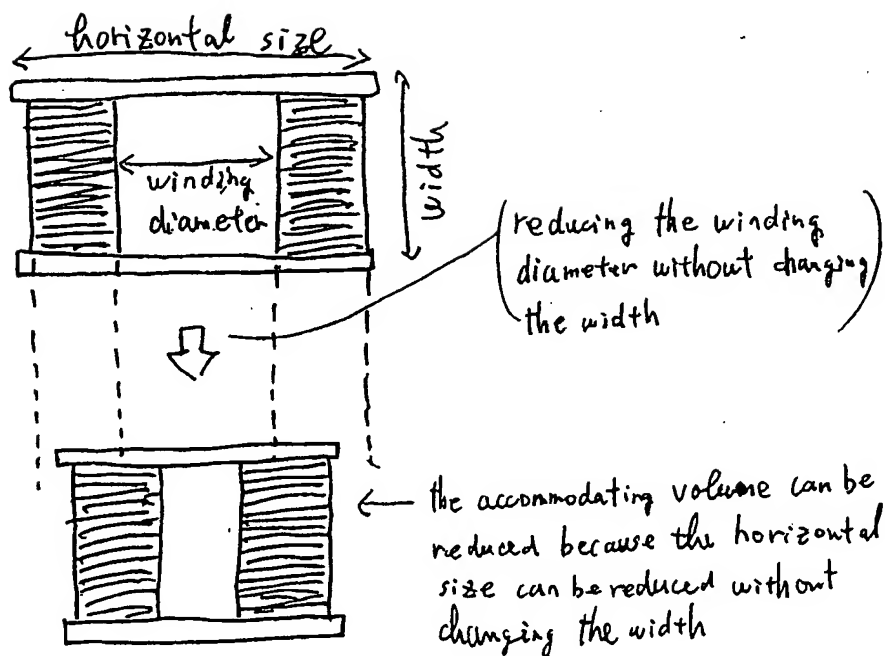 horizontal size
width
winding
diameter
(reducing the winding
diameter without changing
the width)
the accommodating volume can be
reduced because the horizontal
size can be reduced without
changing the width